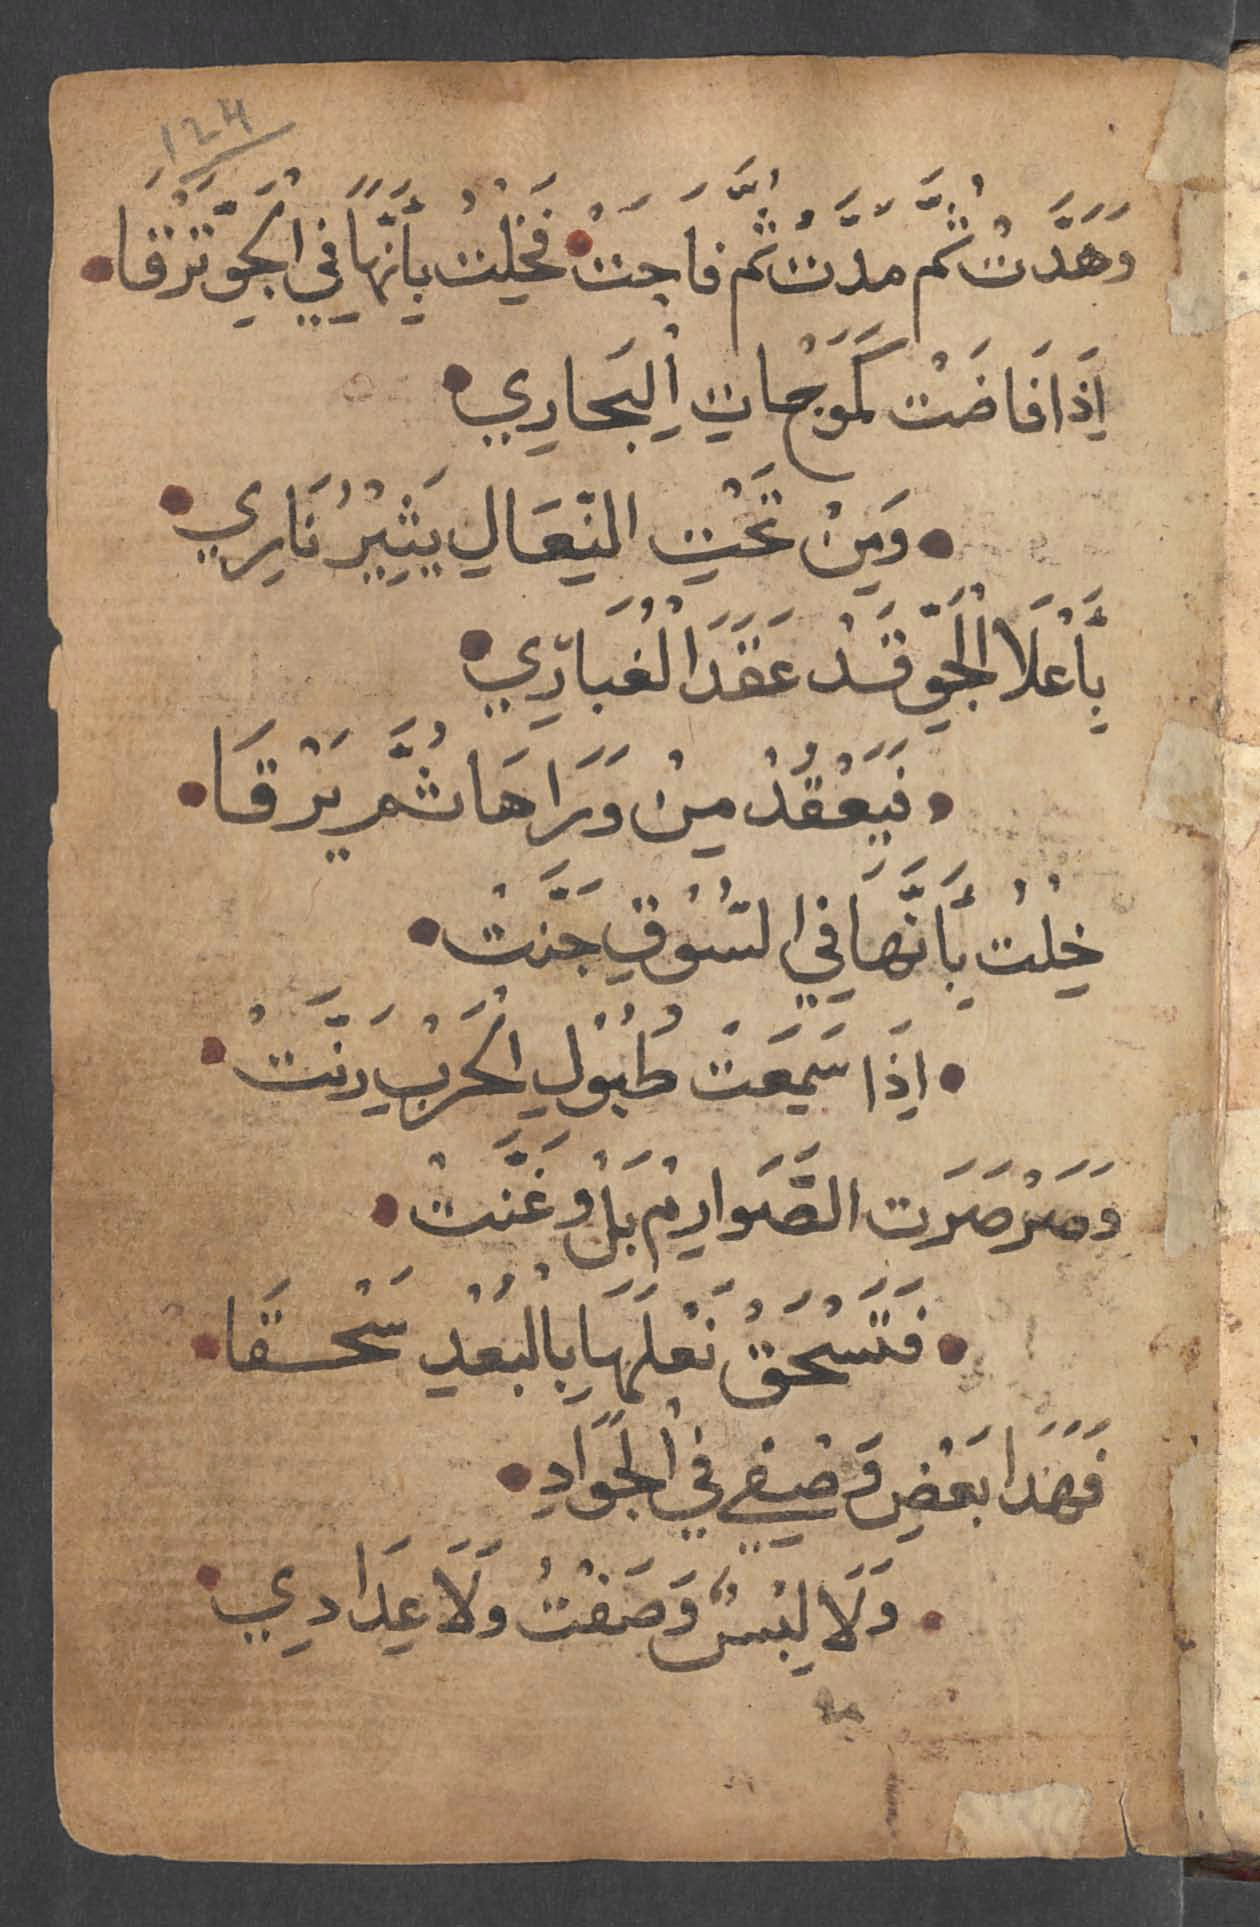 124
وَهَدَّتْ ثُمَّ مَدَّتْ ثُمَّ فَاجَتْ • فَخِلْتُ بِأَنَّهَا فِي الْجَوِّ تَرْقَا •
اِذَا فَاضَتْ كَمَوْجَاتِ الْبِحَارِي •
• وَمِنْ تَحْتِ النِّعَالِ يَثِيْرُ نَارِي •
بِأَعْلَا الْجَوِّ قَدْ عَقَدَ الْغُبَارِي •
• فَيَعْقُدْ مِنْ وَرَاهَا ثُمَّ يَرْقَا •
خِلْتُ بِأَنَّهَا فِي السُّوْقِ جَنَّتْ •
• اِذَا سَمِعَتْ طُبُوْلِ الْحَرْبِ رَنَّتْ •
وَصَرْصَرَتِ الصَّوَارِمْ بَلْ وَغَنَّتْ •
• فَتَسْحَقْ نَعْلَهَا بِالْبُعْدِ سَحْقَا •
فَهَذَا بَعْضِ وَصْفِي فِي الْجَوَادِ •
• وَلَا لِبْسٌ وَصَفْتُ وَلَا عِدَادِي •